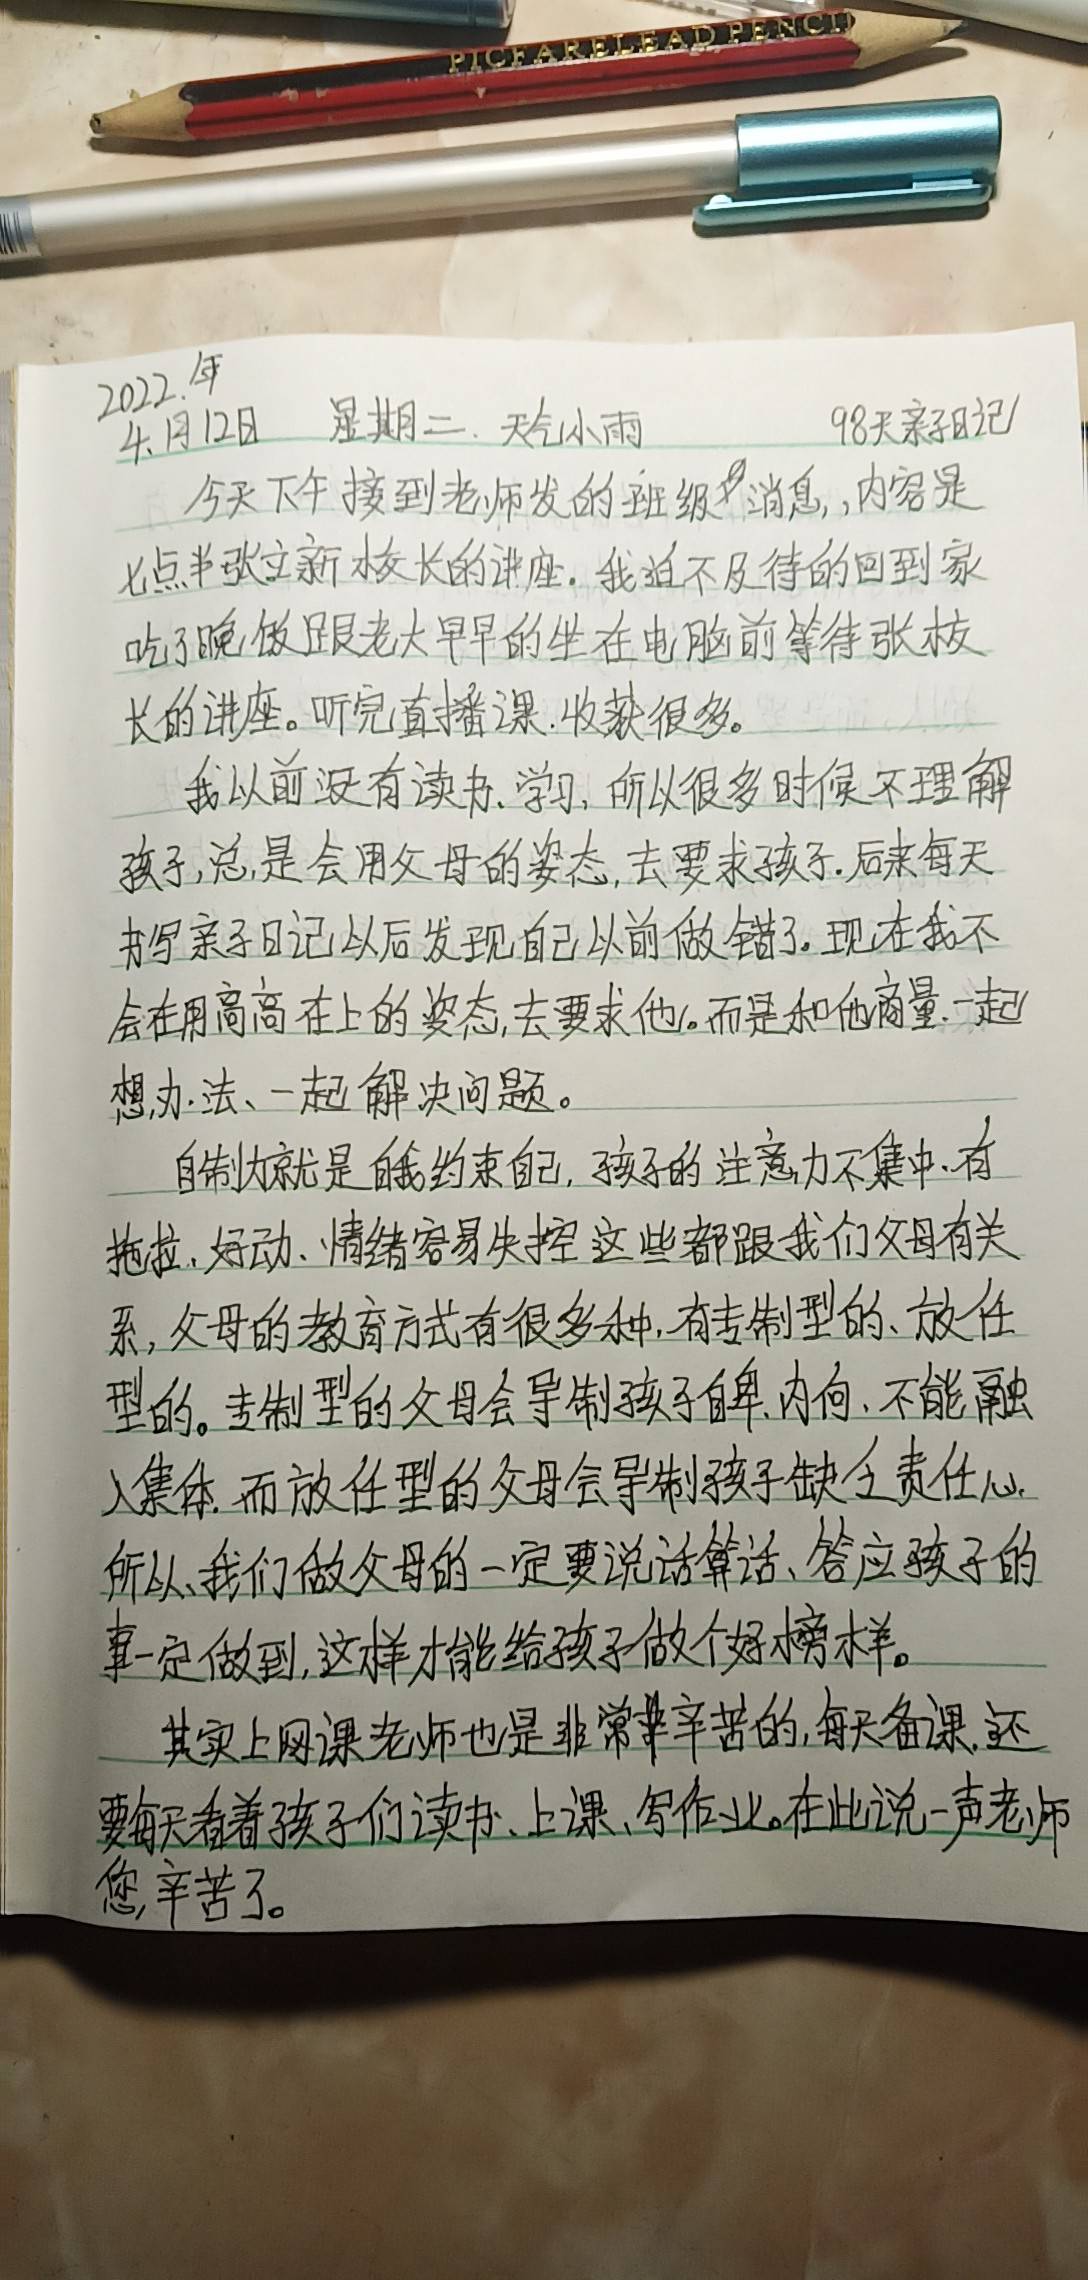 PICFARELEAD PENCIL
2022.年
4.月12日 星期二. 天气小雨 98天亲子日记
今天下午接到老师发的班级消息,,内容是
七点半张立新校长的讲座.我迫不及待的回到家
吃了晚饭跟老大早早的坐在电脑前等待张校
长的讲座。听完直播课.收获很多。
我以前没有读书、学习,所以很多时候不理解
孩子,总是会用父母的姿态,去要求孩子.后来每天
书写亲子日记以后发现自己以前做错了。现在我不
会在用高高在上的姿态,去要求他。而是和他商量.一起
想办法、一起解决问题。
自制力就是自我约束自己,孩子的注意力不集中.有
拖拉、好动、情绪容易失控这些都跟我们父母有关
系,父母的教育方式有很多种,有专制型的、放任
型的。专制型的父母会导制孩子自卑、内向、不能融
入集体.而放任型的父母会导制孩子缺乏责任心.
所以、我们做父母的一定要说话算话、答应孩子的
事一定做到,这样才能给孩子做个好榜样。
其实上网课老师也是非常辛苦的,每天备课,还
要每天看着孩子们读书、上课、写作业。在此说一声老师
您辛苦了。